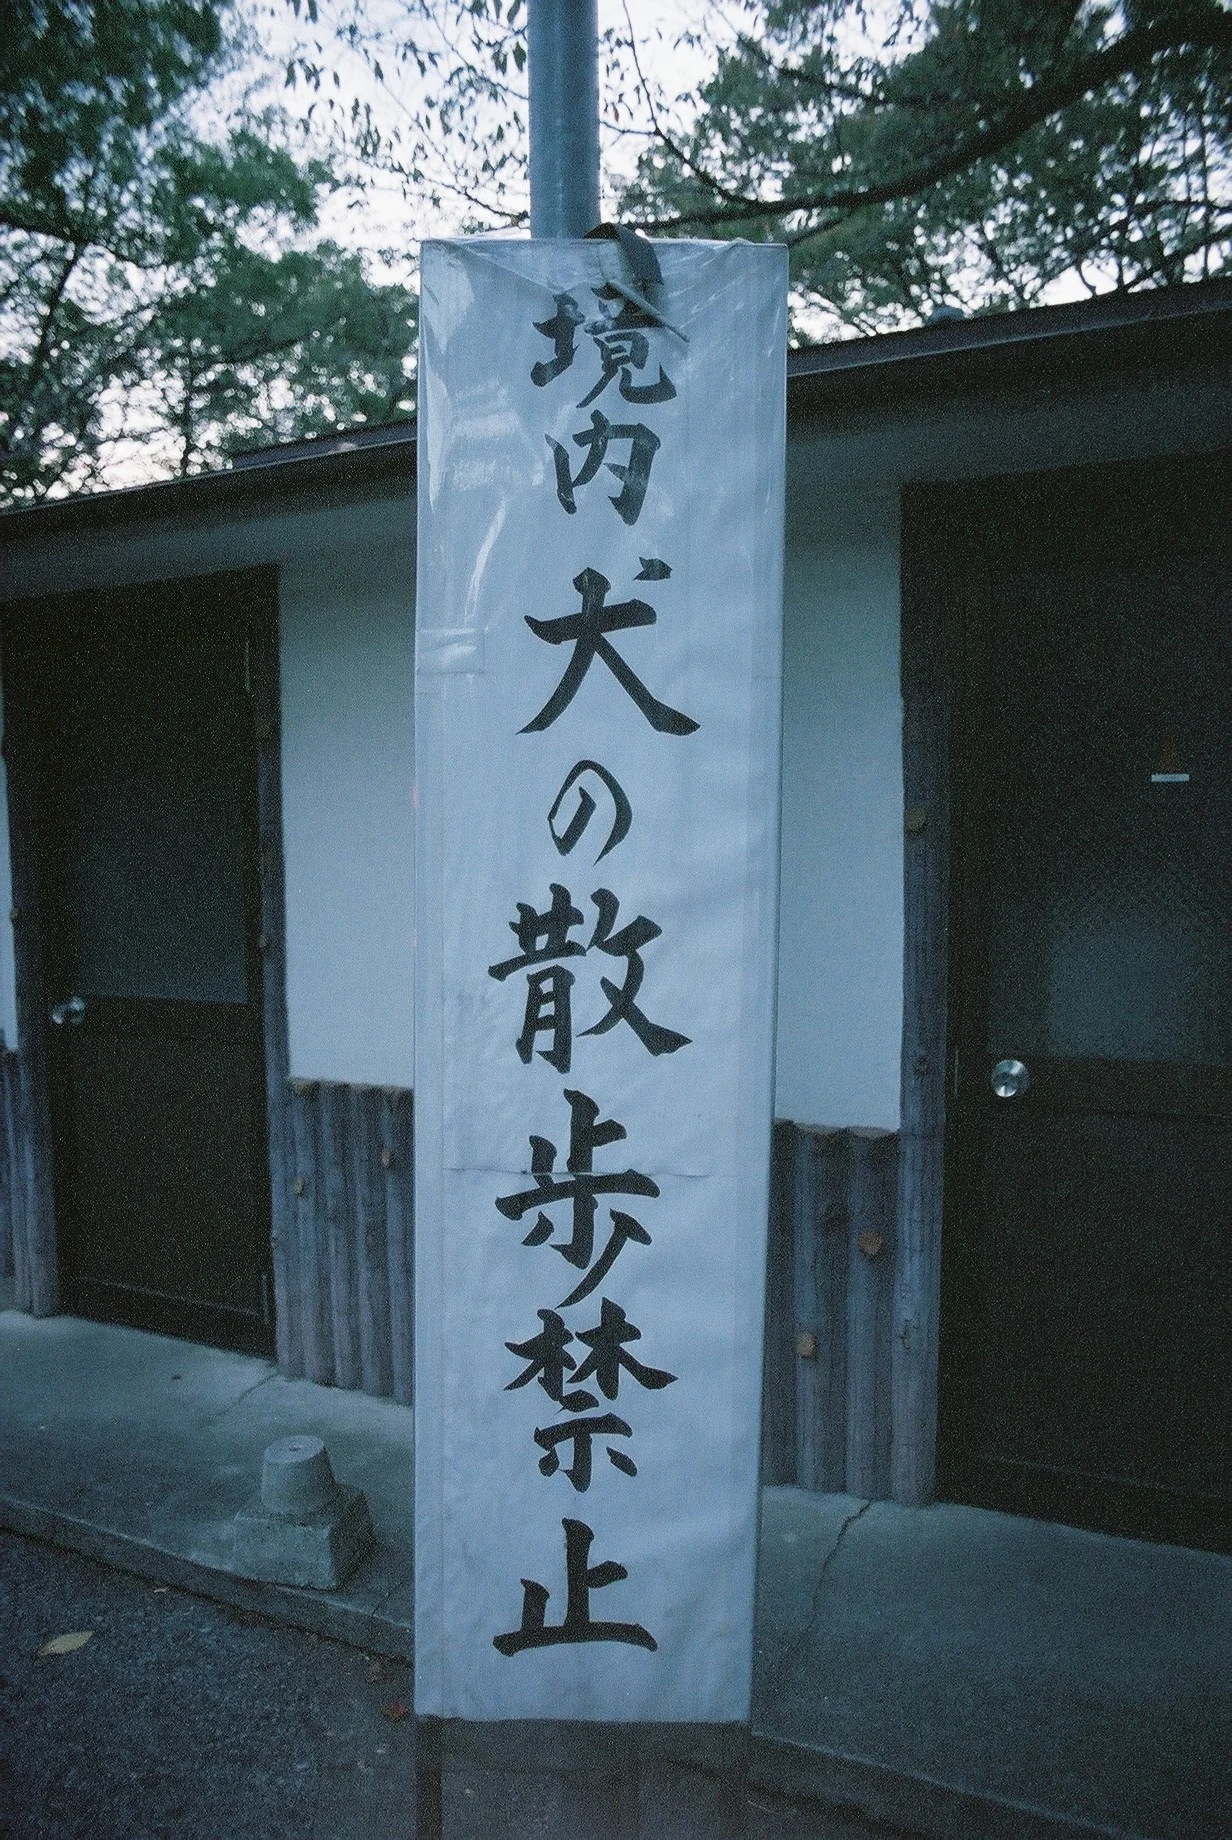 境内犬の散歩禁止